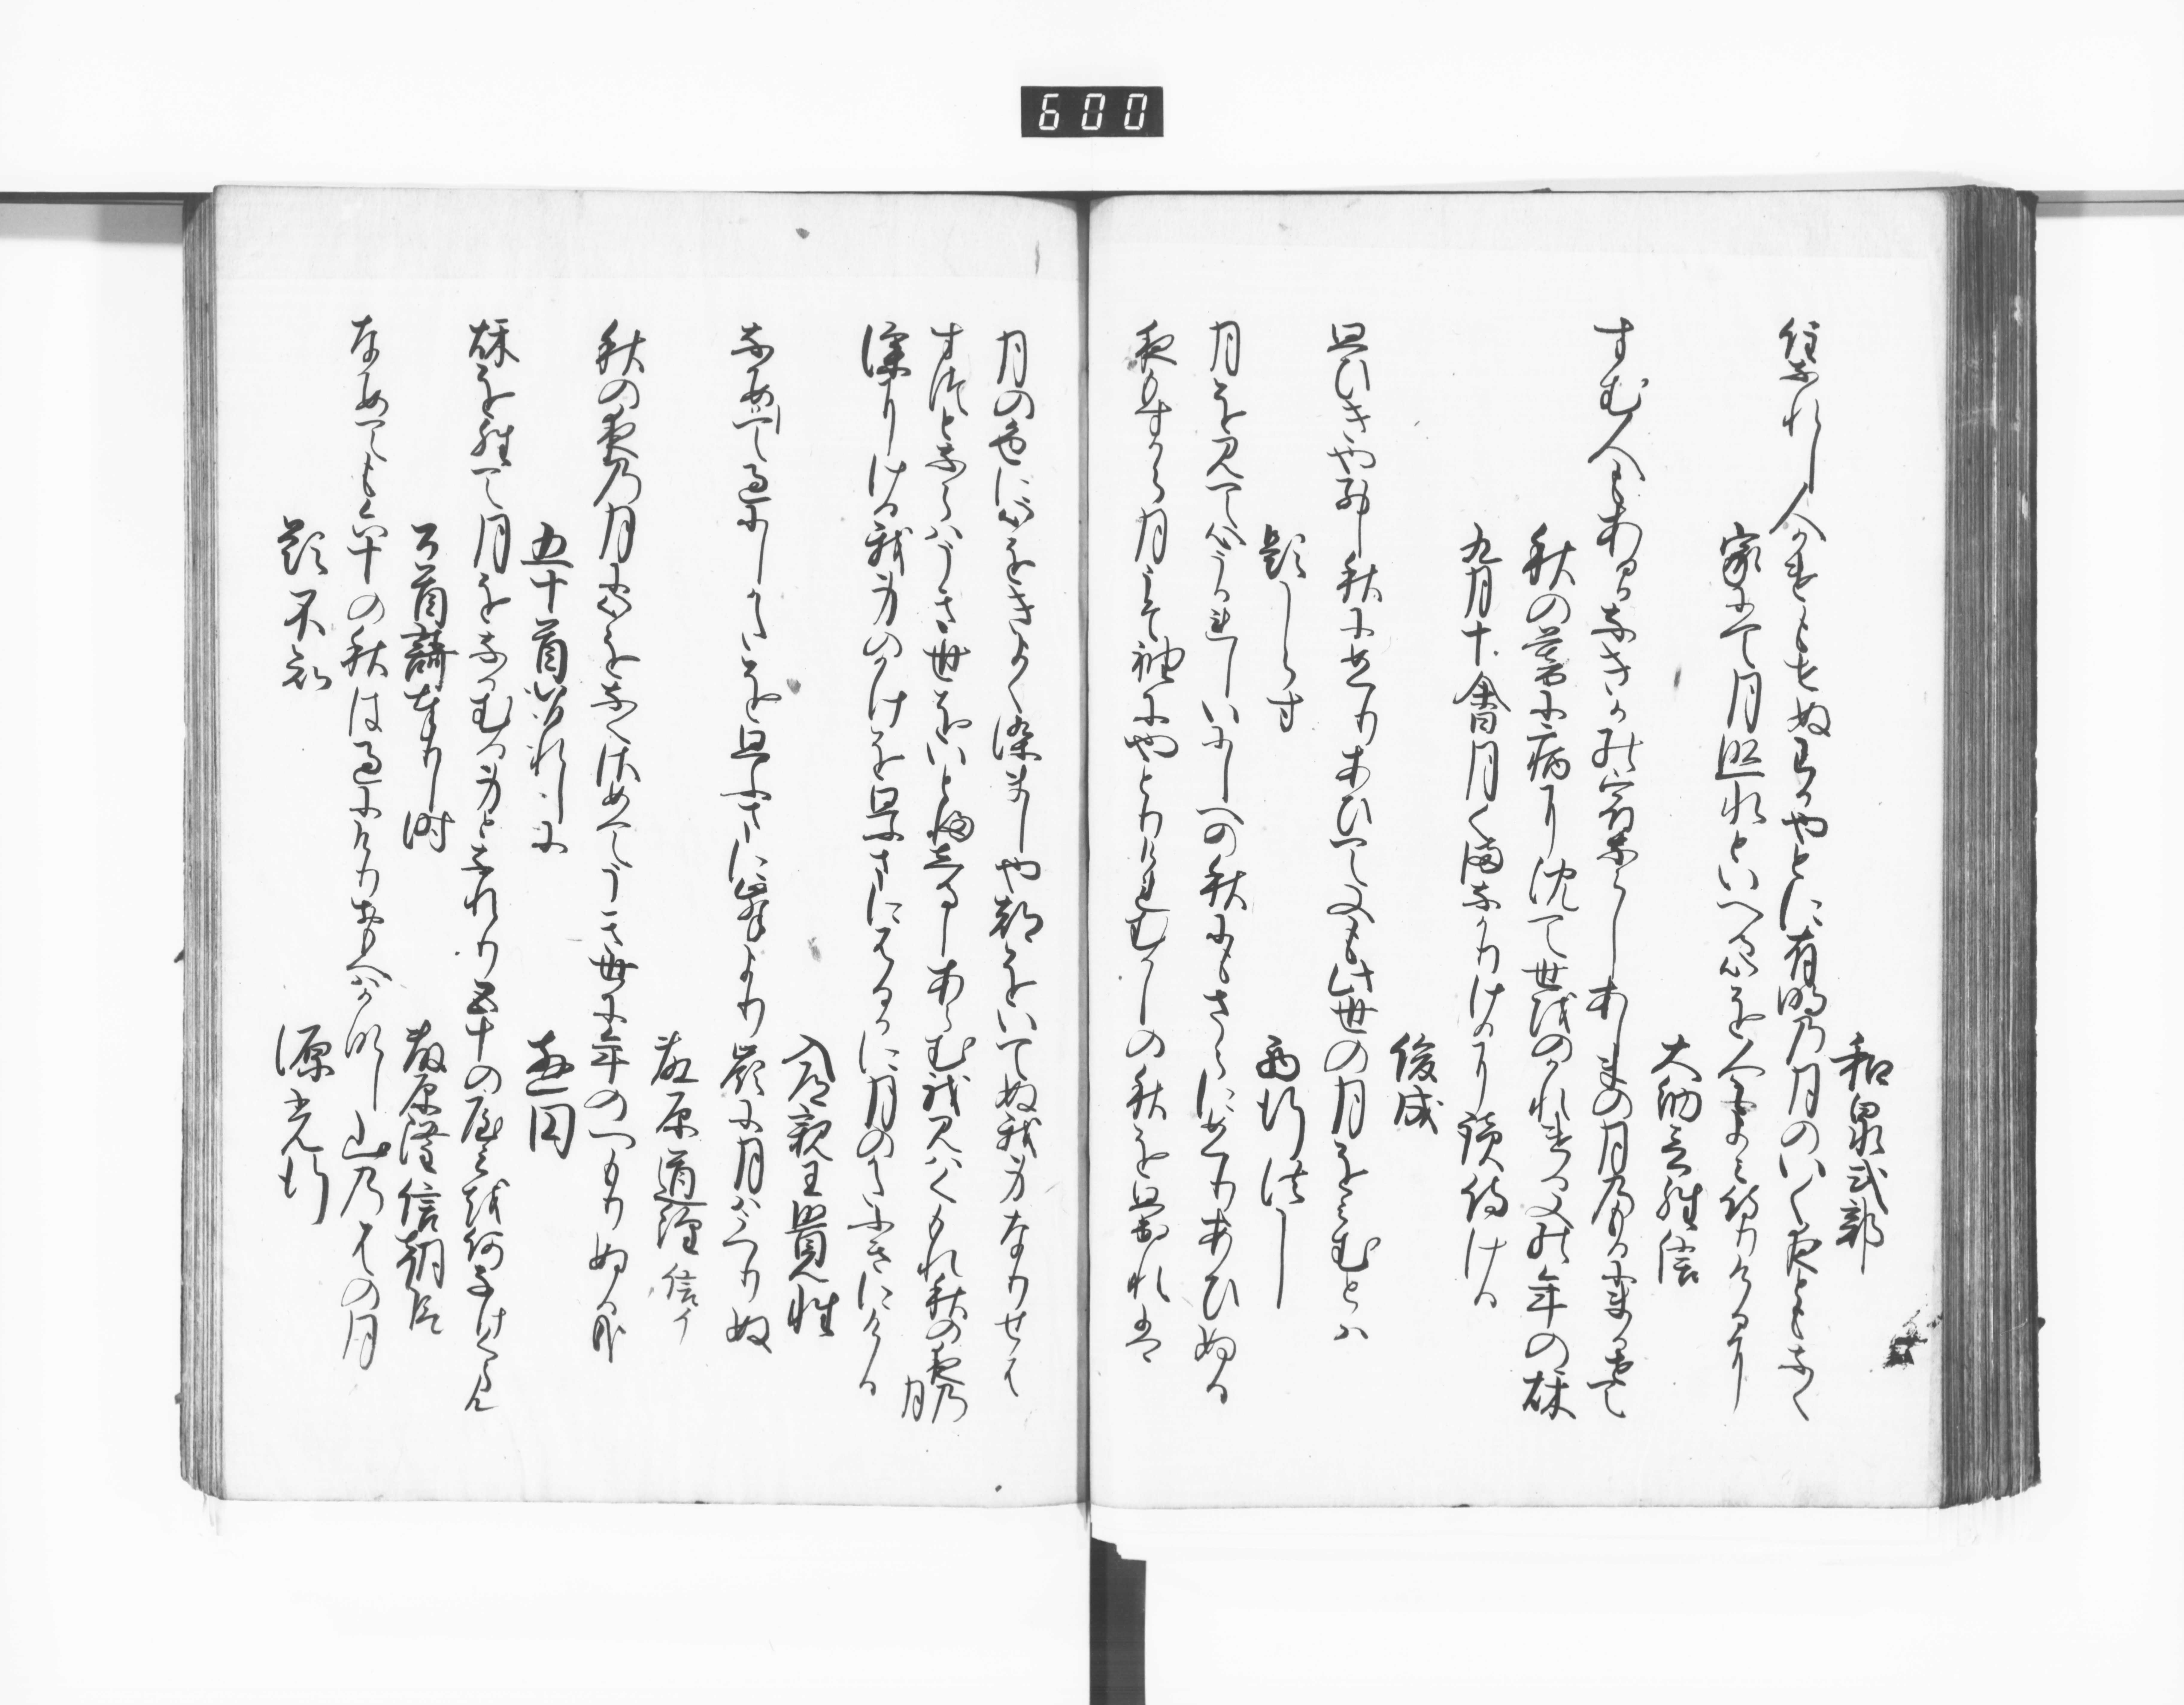 600
和泉式部
住なれし人かけもせぬわかやとに有明の月のいく夜ともなく
家にて月照水といへる心を人々よみ侍けるに
大納言経信
すむ人もあるかなきかの宿ならしあしまの月のもるにまかせて
秋の暮に病に沈て世をのかれける又の年の秋
九月十余日月くまなかりけるに読侍ける
俊成
思ひきや別し秋にめくりあひて又も此世の月をみむとは
題しらす
西行法し
月を見て心うかれしいにしへの秋にもさらにめくりあひぬる
夜もすから月こそ袖にやとりけれむかしの秋を思出れは
月の色に心をきよく染ましや都をいてぬ我身なりせは
すつとならはうき世をいとふしるしあらむ我見はくもれ秋の夜の月
深にける我身のかけを思ふまにはるかに月のかたふきにける
入道親王覚性
なかめして過にしかたを思ふまに峯より峯に月はうつりぬ
藤原道経 信イ
秋の夜の月に心をなくさめてうき世に年のつもりぬる哉
五十首めされしに
慈円
秋を経て月をなかむる身となれり五十のやみを何なけくらん
百首読奉りし時
藤原隆信朝臣
なかめても六十の秋は過にけりおもへはかなし山のはの月
題不知
源光行